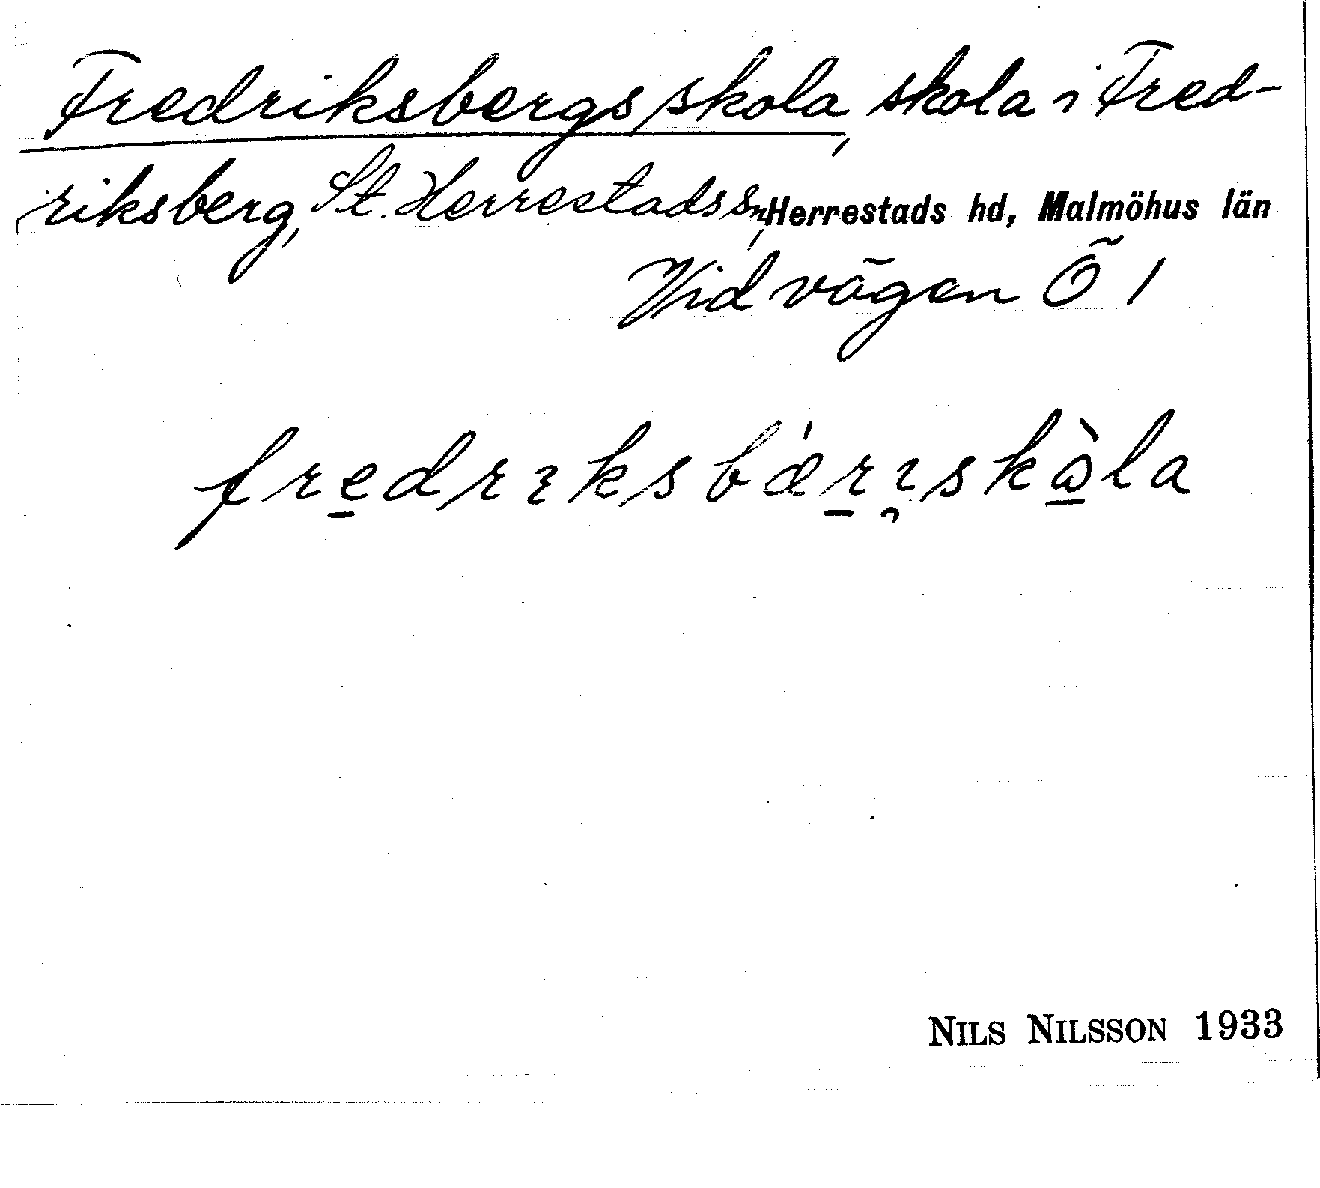 Fredriksbergs skola, skola i Fred-
riksberg, St. Herrestads sn, Herrestads hd, Malmöhus län
Vid vägen Ö 1
fre̱drɩksbǽṟɩ̯skɷ̱̀la
NILS NILSSON 1933